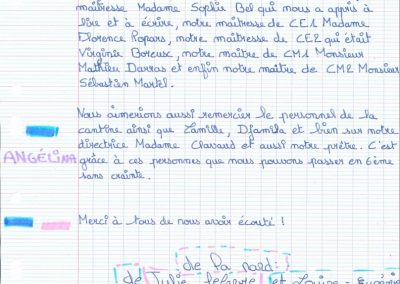 maîtresse Madame Sophie Bel qui nous a appris à
lire et à écrire, notre maîtresse de CE1 Madame
Florence Rapars, notre maîtresse de CE2 qui était
Virginie Boreuse, notre maître de CM1 Monsieur
Mathieu Darras et enfin notre maître de CM2 Monsieur
Sébastien Martel.
Nous aimerions aussi remercier le personnel de la
cantine ainsi que Camille, Djamila et bien sur notre
directrice Madame Clavaud et aussi notre prêtre. C'est
grâce à ces personnes que nous pouvons passer en 6ème
sans crainte.
ANGÉLINA
Merci à tous de nous avoir écouté !
de la part :
de Julie et Louise - Eugénie